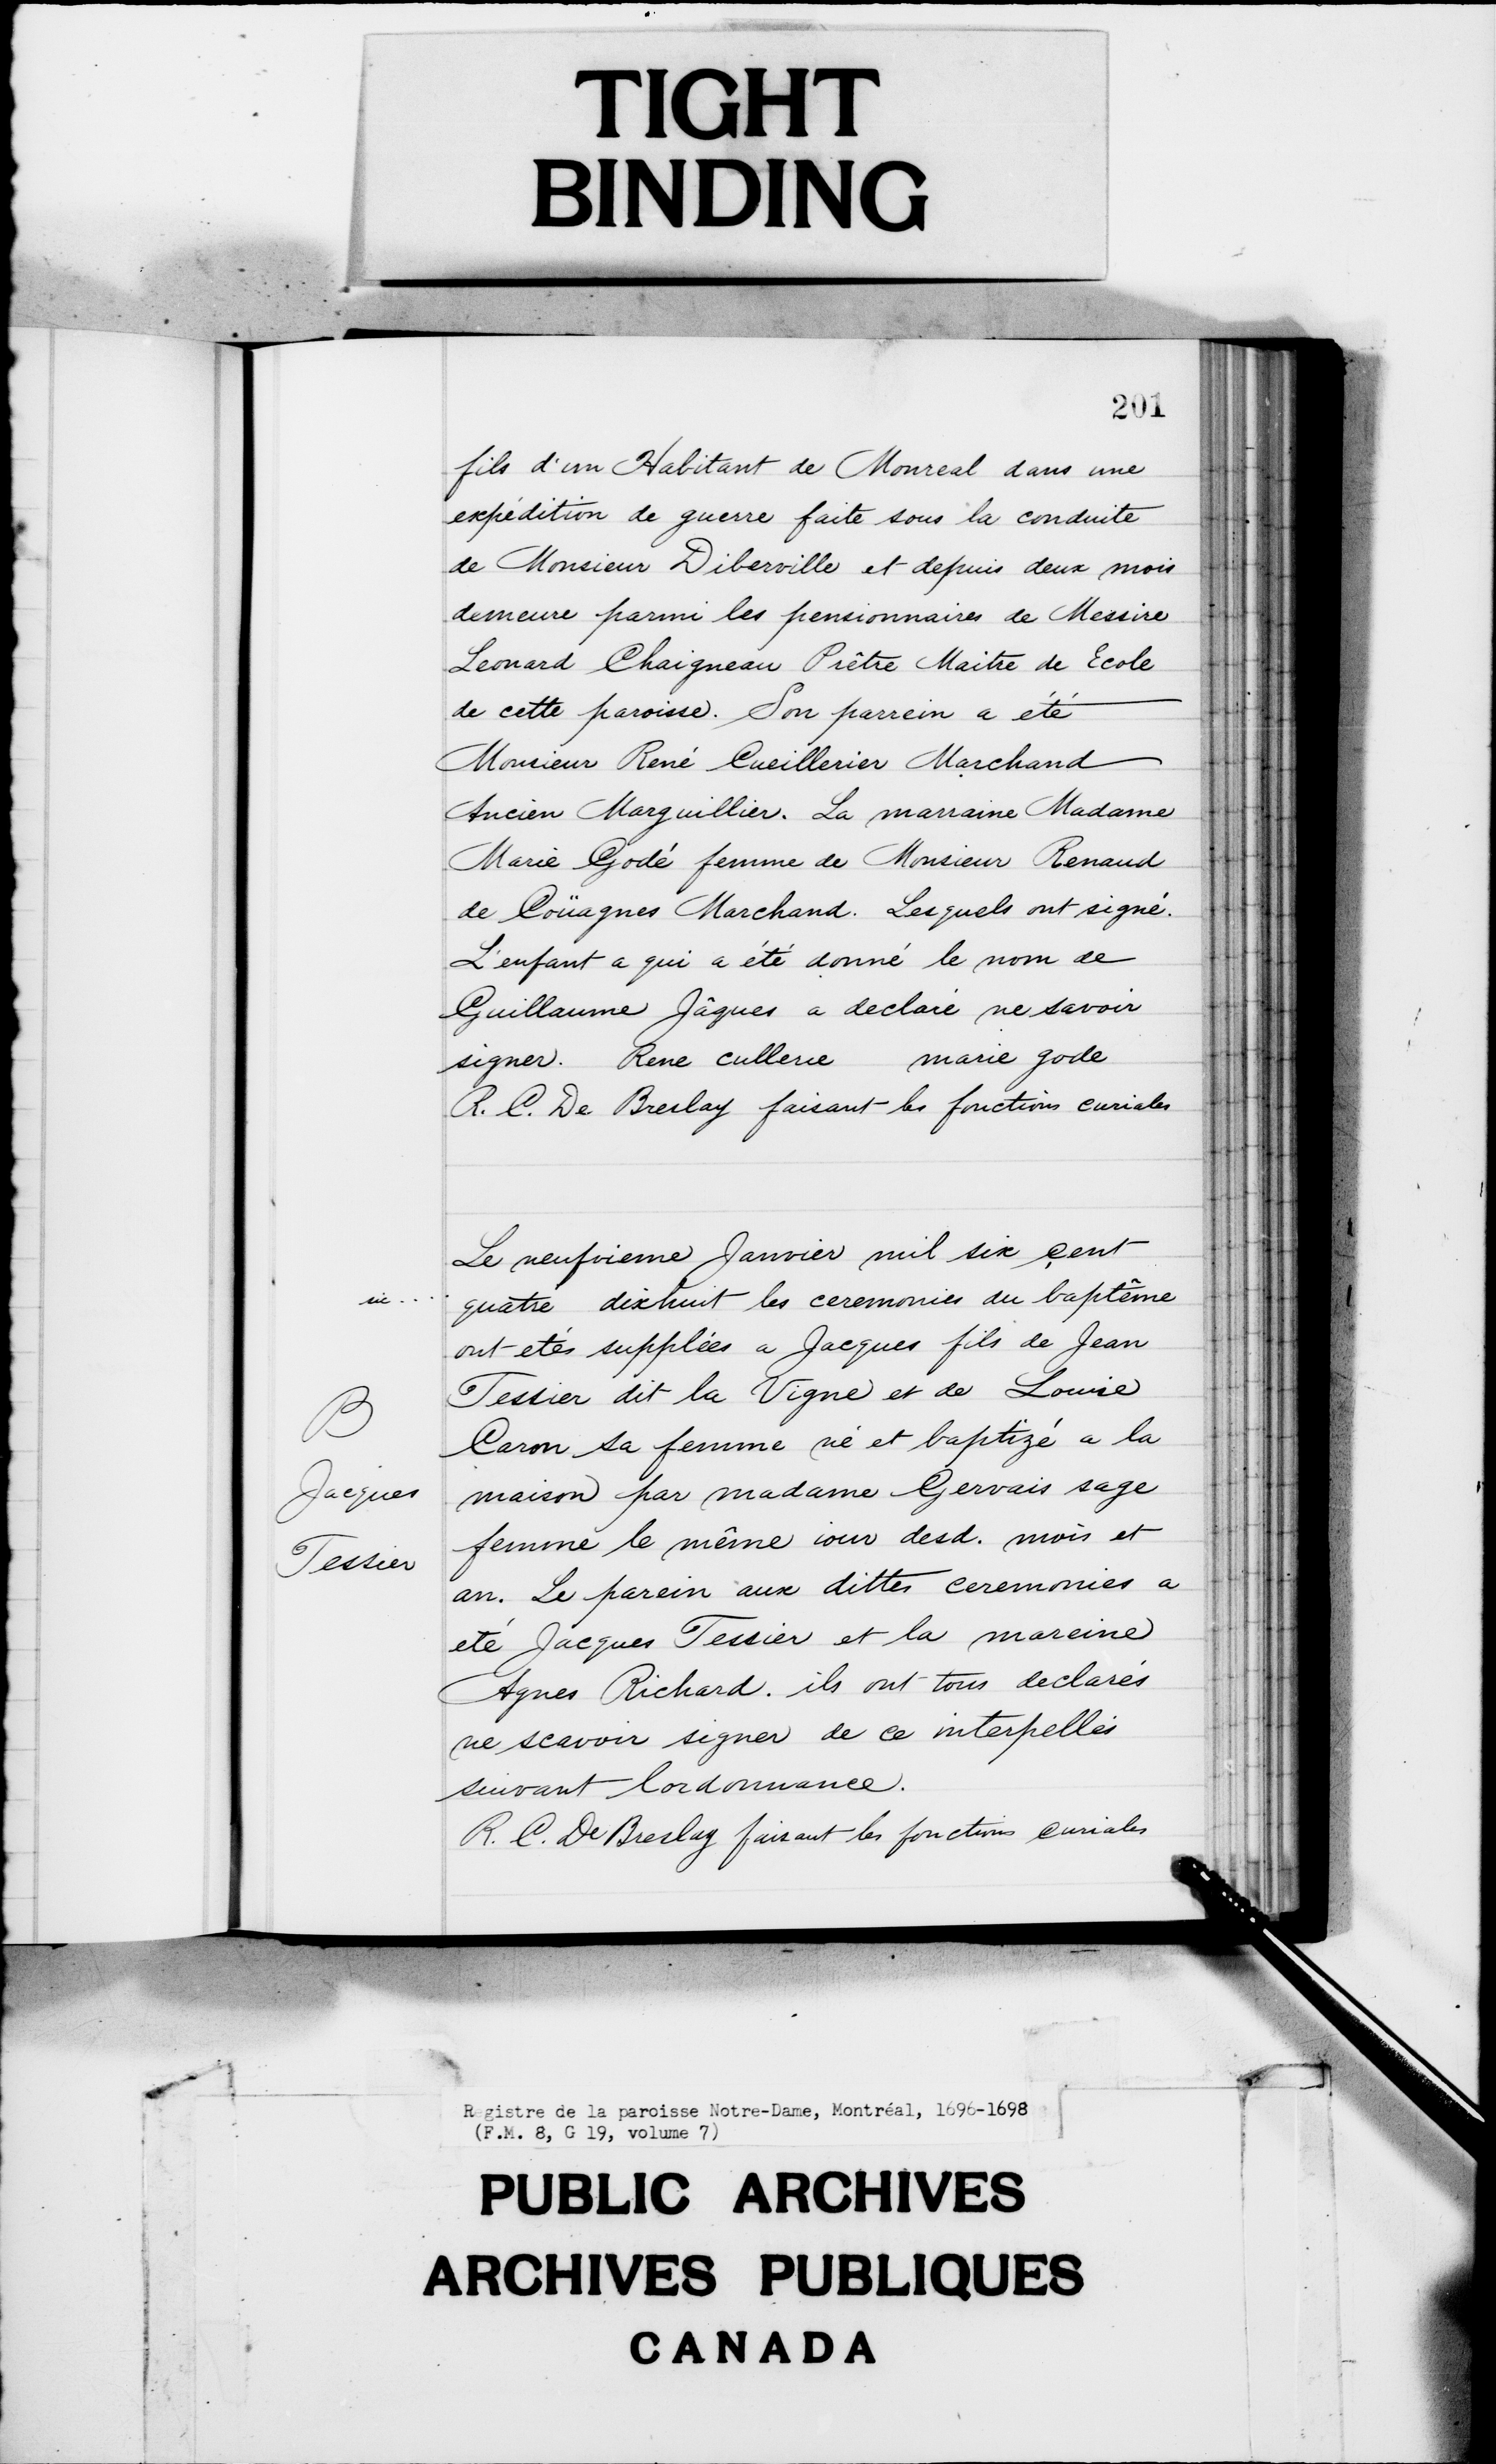 TIGHT
BINDING
201
fils d'un Habitant de Monreal dans une
expédition de guerre faite sous la conduite
de Monsieur Diberville et depuis deux mois
demeure parmi les pensionnaires de Messire
Leonard Chaigneau Prêtre Maitre de Ecole
de cette paroisse. Son parrein a été
Monsieur René Cueillerier Marchand
Ancien Marguillier. La marraine Madame
Marie Godé femme de Monsieur Renaud
de Coüagnes Marchand. Lesquels ont signé.
L'enfant a qui a été donné le nom de
Guillaume Jâques a declaré ne savoir
signer. Rene cullerie marie gode
R. C. De Breslay faisant les fonctions curiales
Le neufvieme Janvier mil six cent
sic.... quatre dixhuit les ceremonies du baptême
ont etés supplées a Jacques fils de Jean
Tessier dit la Vigne et de Louise
B
Caron sa femme né et baptizé a la
Jacques
maison par madame Gervais sage
femme le même iour desd. mois et
Tessier
an. Le parein aux dittes ceremonies a
eté Jacques Tessier et la mareine
Agnes Richard. ils ont tous declarés
ne scavoir signer de ce interpellés
suivant lordonnance.
R. C. De Breslay faisant les fonctions curiales
Registre de la paroisse Notre-Dame, Montréal, 1696-1698
(F.M. 8, G 19, volume 7)
PUBLIC ARCHIVES
ARCHIVES PUBLIQUES
CANADA